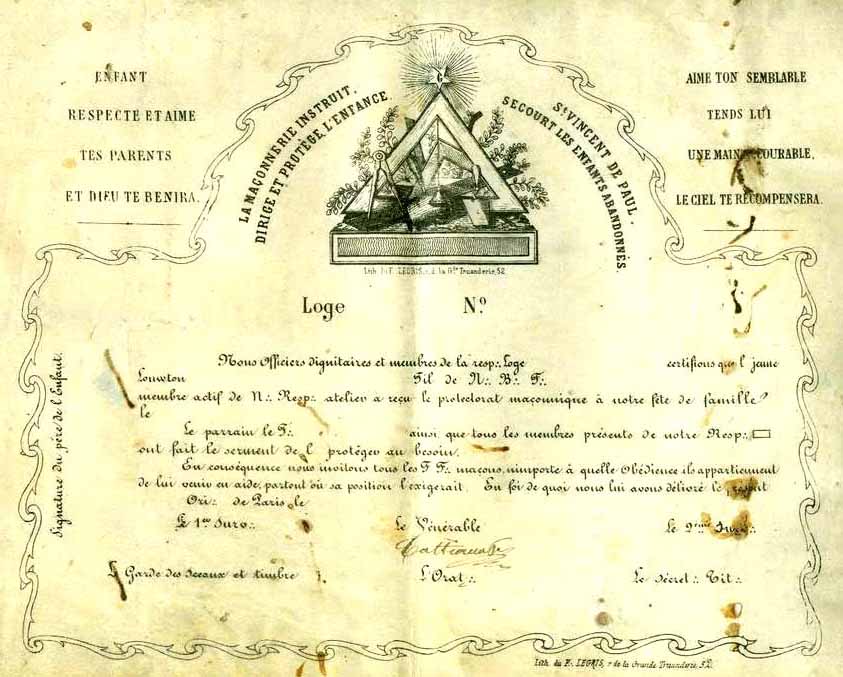 ENFANT
RESPECTE ET AIME
TES PARENTS
ET DIEU TE BENIRA.
LA MAÇONNERIE INSTRUIT,
DIRIGE ET PROTÈGE L'ENFANCE.
G
St VINCENT DE PAUL
SECOURT LES ENFANTS ABANDONNÉS.
AIME TON SEMBLABLE
TENDS LUI
UNE MAIN SECOURABLE,
LE CIEL TE RÉCOMPENSERA.
Lith. du F. LEGRIS, r. de la Gde Truanderie, 52
Loge No
Nous Officiers dignitaires et membres de la resp∴ Loge certifions que l jeune
Louwton Fil de N∴ B∴ F∴
membre actif de N∴ Resp∴ atelier a reçu le protectorat maçonnique à notre fête de famille
le
Le parrain le F∴ ainsi que tous les membres présents de notre Resp∴
ont fait le serment de l protéger au besoin.
En conséquence nous invitons tous les F F∴ maçons, nimporte à quelle Obédience ils appartiennent
de lui venir en aide, partout où sa position l'exigerait. En foi de quoi nous lui avons délivré le présent
Ori∴ de Paris, le
Le 1er Surv∴ Le Vénérable Le 2eme Surv∴
Garde des Sceaux et timbre L'Orat∴ Le Sécret∴ Tit∴
Signature du père de l'Enfant.
Lith. du F. LEGRIS, r. de la Grande Truanderie, 52.